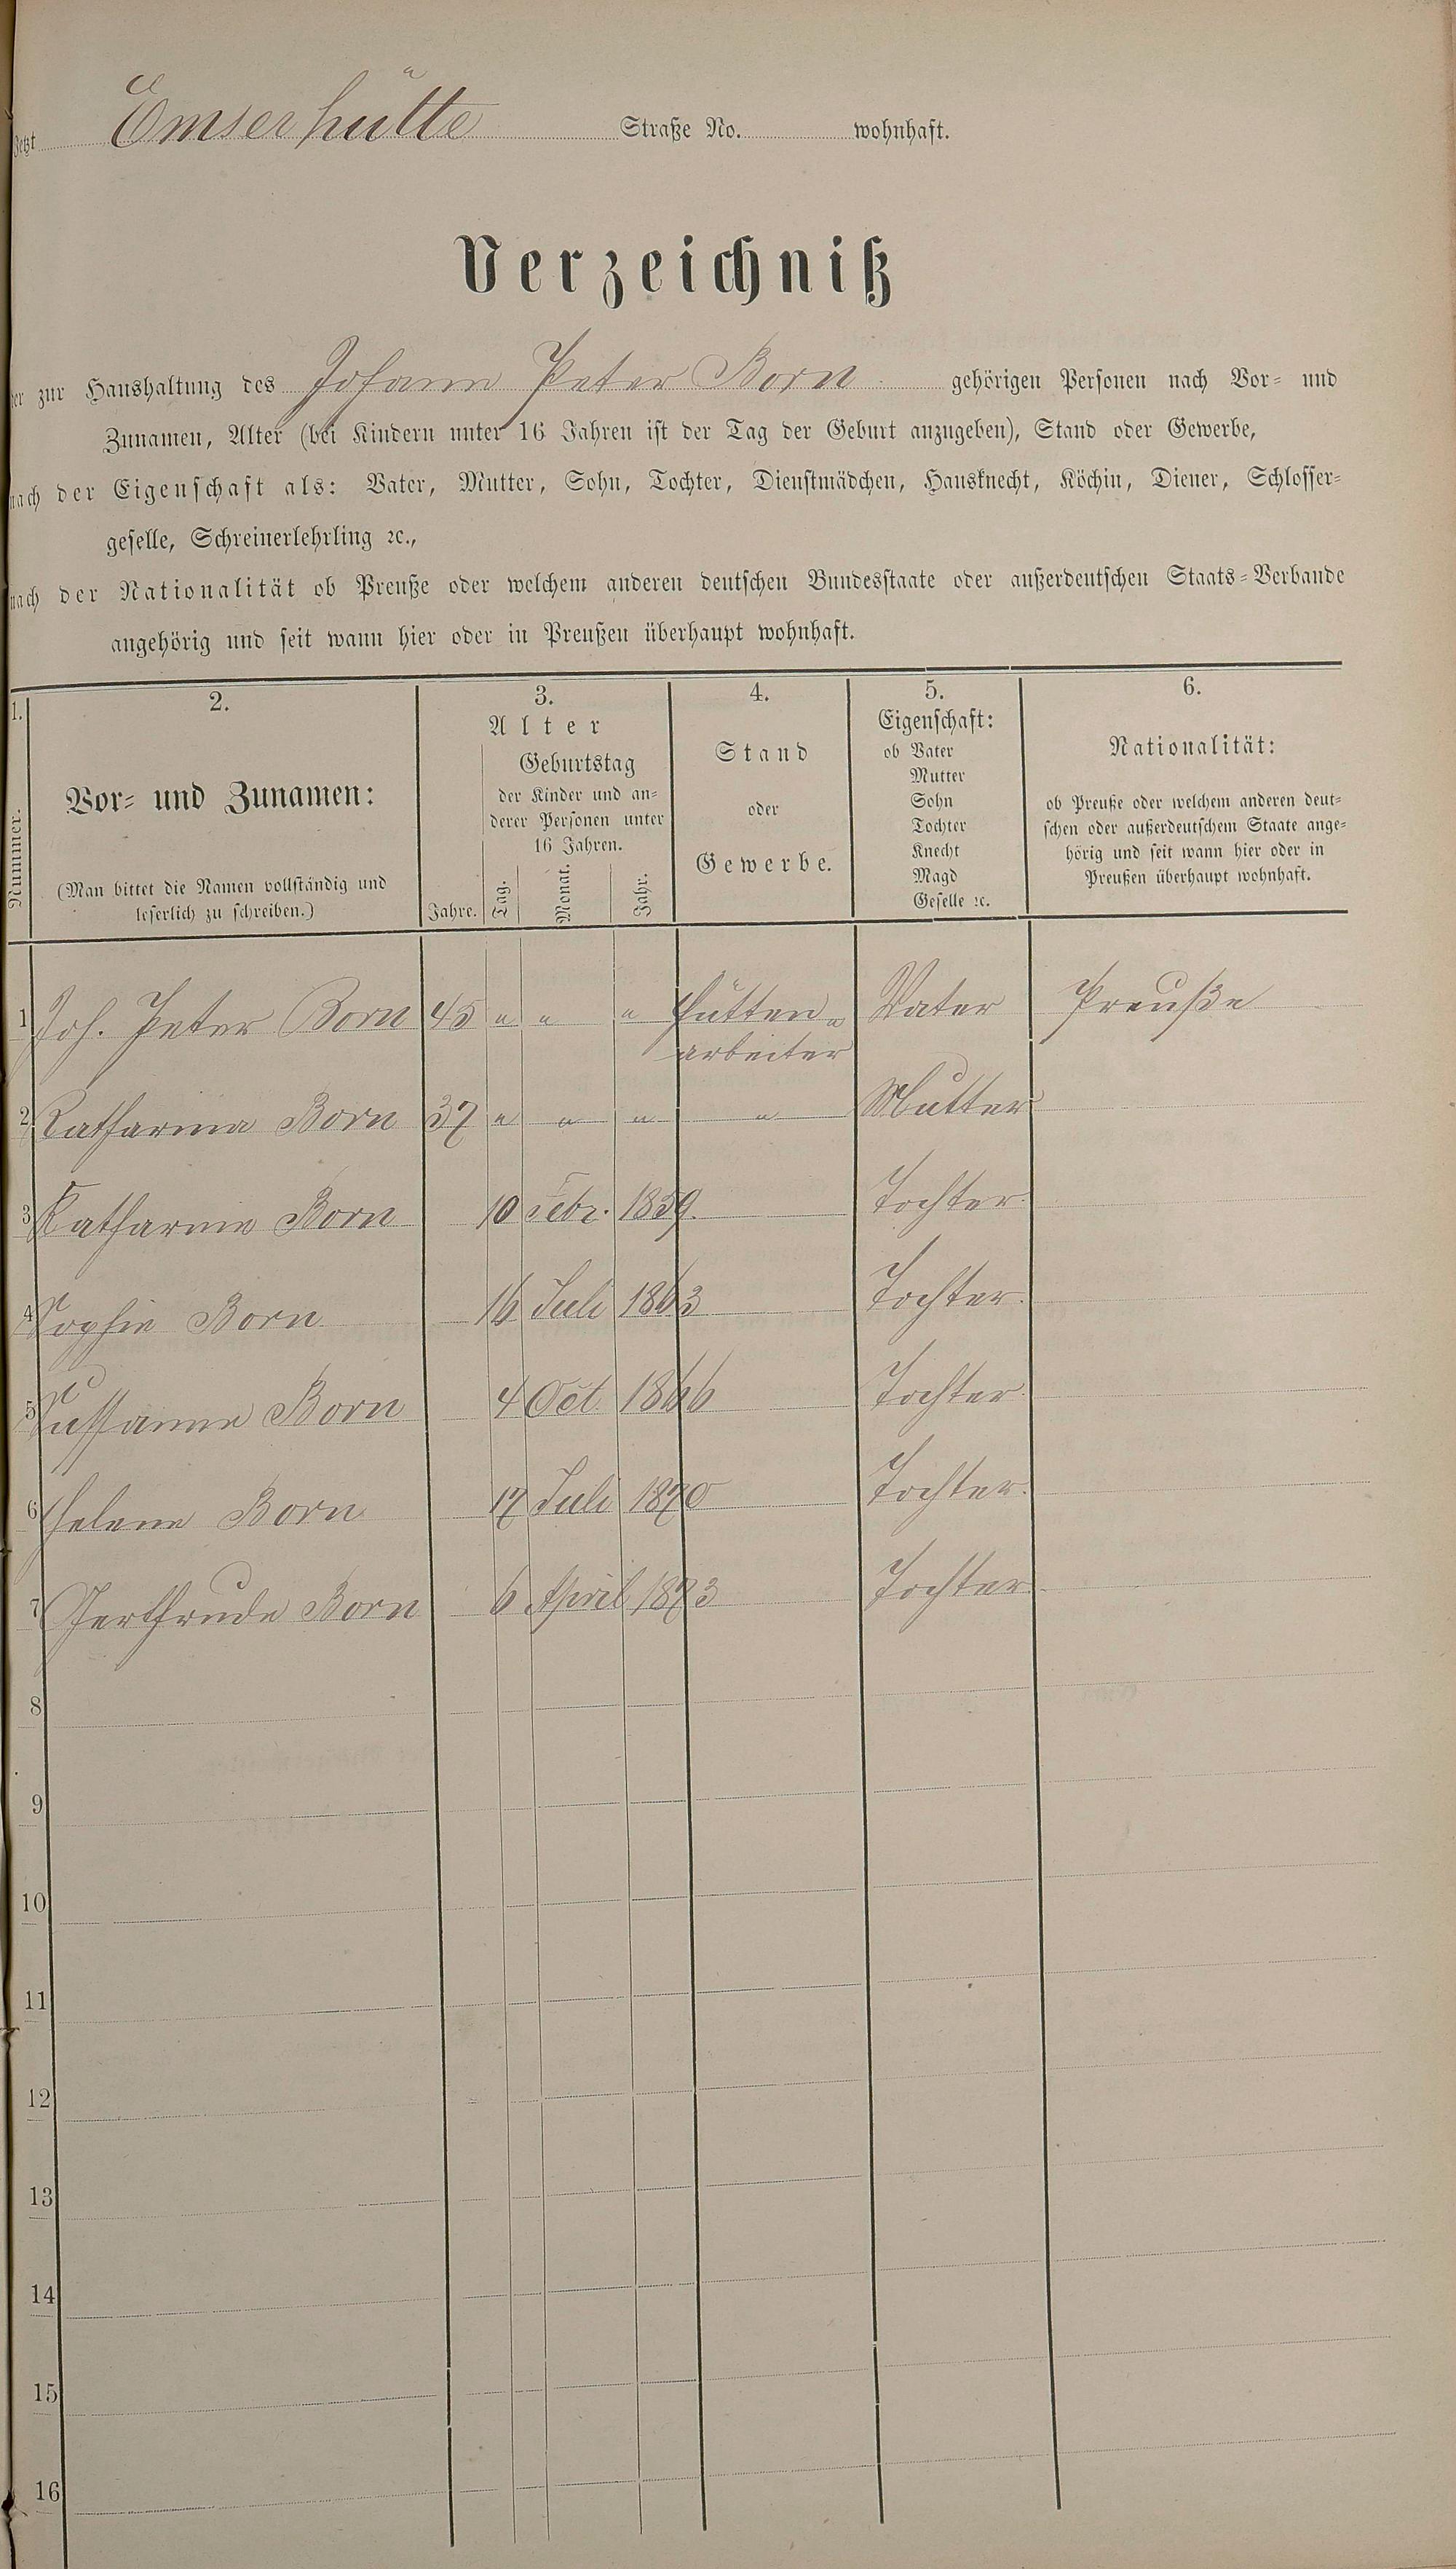 Jetzt Emserhütte Straße No. wohnhaft.
Verzeichniß
der zur Haushaltung des Johann Peter Born gehörigen Personen nach Vor- und
Zunamen, Alter (bei Kindern unter 16 Jahren ist der Tag der Geburt anzugeben), Stand oder Gewerbe,
nach der Eigenschaft als: Vater, Mutter, Sohn, Tochter, Dienstmädchen, Hausknecht, Köchin, Diener, Schlosser-
geselle, Schreinerlehrling ꝛc.,
nach der Nationalität ob Preuße oder welchem anderen deutschen Bundesstaate oder außerdeutschen Staats-Verbande
angehörig und seit wann hier oder in Preußen überhaupt wohnhaft.
1. 2. 3. 4. 5. 6.
Nummer.
Vor- und Zunamen:
(Man bittet die Namen vollständig und
leserlich zu schreiben.)
Alter
Jahre.
Geburtstag
der Kinder und an-
derer Personen unter
16 Jahren.
Tag. Monat. Jahr.
Stand
oder
Gewerbe.
Eigenschaft:
ob Vater
Mutter
Sohn
Tochter
Knecht
Magd
Geselle ꝛc.
Nationalität:
ob Preuße oder welchem anderen deut-
schen oder außerdeutschem Staate ange-
hörig und seit wann hier oder in
Preußen überhaupt wohnhaft.
1 Joh. Peter Born 45 " " " Hütten- Vater Preuße
arbeiter
2 Katharina Born 37 " " " " Mutter
3 Katharine Born 10 Febr. 1859. Tochter
4 Sophie Born 16 Juli 1863 Tochter
5 Sussanne Born 4 Oct. 1866 Tochter
6 Helene Born 17 Juli 1870 Tochter
7 Gerthrude Born 6 April 1873 Tochter
8
9
10
11
12
13
14
15
16